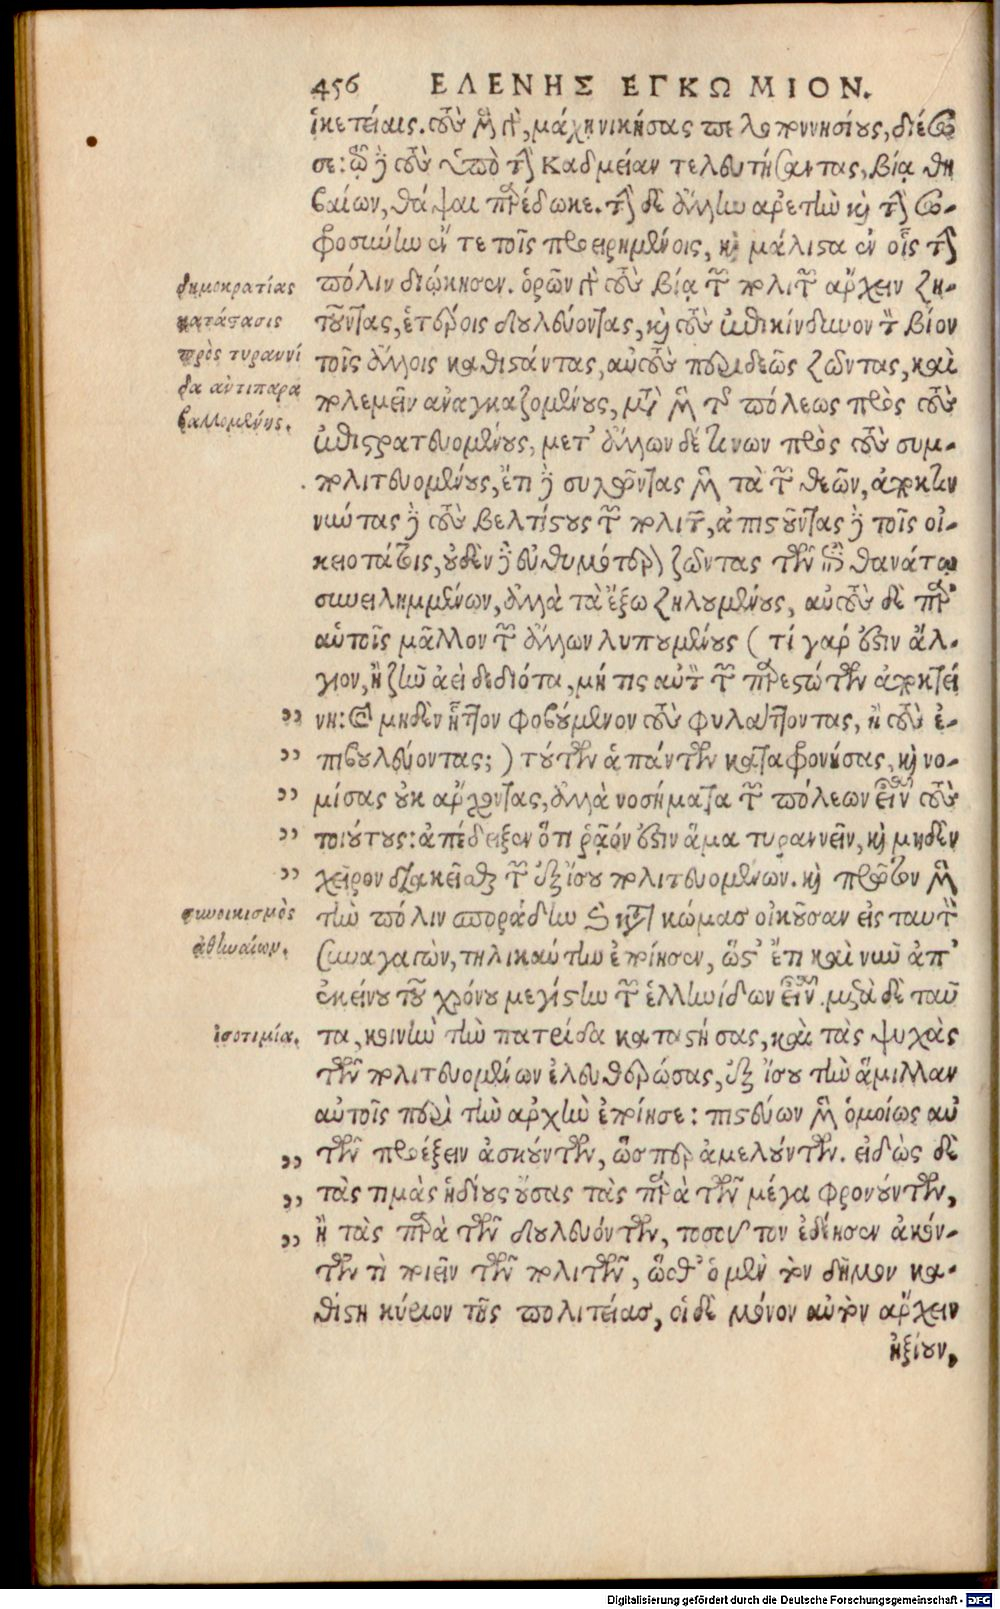 456 ΕΛΕΝΗΣ ΕΓΚΩΜΙΟΝ.
ἱκετείαις. τοὺς μὲν γὰρ, μάχῃ νικήσας πελοποννησίους, διέσω
σε: τῶν δὲ τοὺς ὑπὸ τὴν Καδμείαν τελευτήσαντας, βίᾳ θη
βαίων, θάψαι παρέδωκε. τὴν δὲ ἄλλην ἀρετὴν καὶ τὴν σω-
φροσύνην ἔν τε τοῖς προειρημένοις, καὶ μάλιστα ἐν οἷς τὴν
πόλιν διῴκησεν. ὁρῶν γὰρ τοὺς βίᾳ τῶν πολιτῶν ἄρχειν ζη-
τοῦντας, ἑτέροις δουλεύοντας, καὶ τοὺς ἐπικίνδυνον τὸν βίον
τοῖς ἄλλοις καθιστάντας, αὐτοὺς περιδεῶς ζῶντας, καὶ
πολεμεῖν ἀναγκαζομένους, μετὰ μὲν τῆς πόλεως πρὸς τοὺς
ἐπιστρατευομένους, μετ' ἄλλων δέ τινων πρὸς τοὺς συμ-
πολιτευομένους, ἔτι δὲ συλῶντας μὲν τὰ τῶν θεῶν, ἀποκτιν
νύντας δὲ τοὺς βελτίστους τῶν πολιτῶν, ἀπιστοῦντας δὲ τοῖς οἰ-
κειοτάτοις, οὐδὲν δὲ εὐθυμότερον ζῶντας τῶν ἐπὶ θανάτῳ
συνειλημμένων, ἀλλὰ τὰ ἔξω ζηλουμένους, αὐτοὺς δὲ παρ'
αὑτοῖς μᾶλλον τῶν ἄλλων λυπουμένους (τί γάρ ἐστιν ἄλ-
γιον, ἢ ζῆν ἀεὶ δεδιότα, μή τις αὐτὸν τῶν παρεστώτων ἀποκτεί
νῃ: καὶ μηδὲν ἧττον φοβούμενον τοὺς φυλάττοντας, ἢ τοὺς ἐ-
πιβουλεύοντας;) τούτων ἁπάντων καταφρονήσας, καὶ νο-
μίσας οὐκ ἄρχοντας, ἀλλὰ νοσήματα τῶν πόλεων εἶναι τοὺς
τοιούτους: ἀπέδειξεν ὅτι ῥᾷόν ἐστιν ἅμα τυραννεῖν, καὶ μηδὲν
χεῖρον διακεῖσθαι τῶν ἐξ ἴσου πολιτευομένων. καὶ πρῶτον μὲν
τὴν πόλιν σποράδην καὶ κατὰ κώμας οἰκοῦσαν εἰς ταυτὸν
συναγαγὼν, τηλικαύτην ἐποίησεν, ὥστ' ἔτι καὶ νῦν ἀπ'
ἐκείνου τοῦ χρόνου μεγίστην τῶν ἑλληνίδων εἶναι. μετὰ δὲ ταῦ
τα, κοινὴν τὴν πατρίδα καταστήσας, καὶ τὰς ψυχὰς
τῶν πολιτευομένων ἐλευθερώσας, ἐξ ἴσου τὴν ἅμιλλαν
αὐτοῖς περὶ τὴν ἀρχὴν ἐποίησε: πιστεύων μὲν ὁμοίως αὐ
τῶν προέξειν ἀσκούντων, ὥσπερ ἀμελούντων. εἰδὼς δὲ
τὰς τιμὰς ἡδίους οὔσας τὰς παρὰ τῶν μέγα φρονούντων,
ἢ τὰς παρὰ τῶν δουλευόντων, τοσούτου ἐδέησεν ἀκόν-
των τὶ ποιεῖν τῶν πολιτῶν, ὥσθ' ὁ μὲν τὸν δῆμον κα-
θίστη κύριον τῆς πολιτείας, οἱ δὲ μόνον αὐτὸν ἄρχειν
ἠξίουν,
δημοκρατίας
κατάστασις
πρὸς τυραννί
δα ἀντιπαρα
βαλλομένης.
συνοικισμὸς
ἀθηναίων.
ἰσοτιμία.
Digitalisierung gefördert durch die Deutsche Forschungsgemeinschaft - DFG